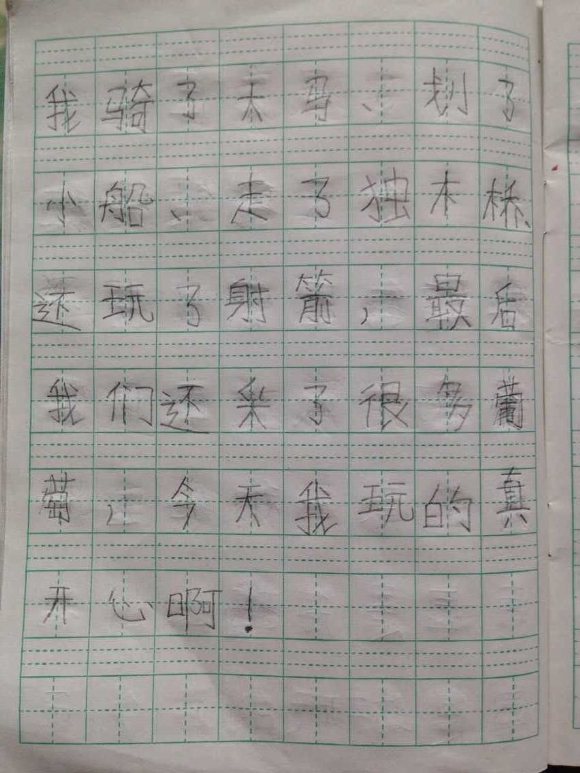 我骑了大马、划了
小船、走了独木桥、
还玩了射箭，最后
我们还采了很多葡
萄，今天我玩的真
开心啊！